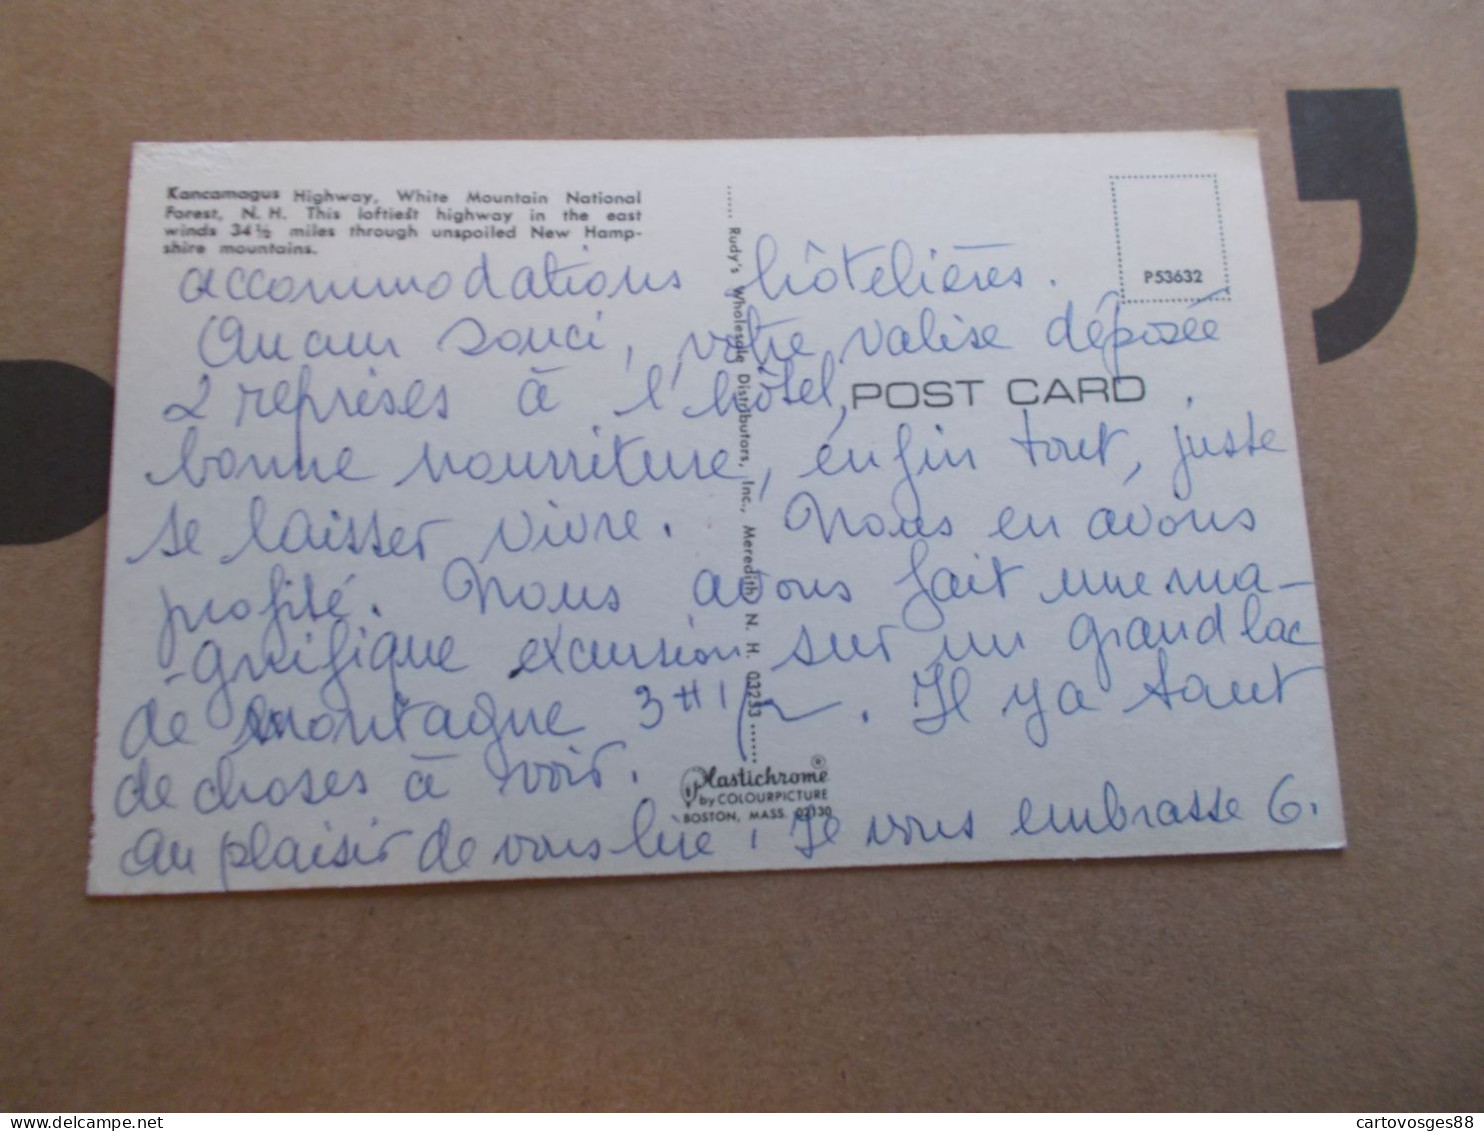 Kancamagus Highway, White Mountain National
Forest, N. H. This loftiest highway in the east
winds 34½ miles through unspoiled New Hamp-
shire mountains.
P53632
POST CARD
accommodations hôtelières.
Aucun souci, votre valise déposée
2 reprises à l'hôtel,
bonne nourriture, enfin tout, juste
se laisser vivre. Nous en avons
profité. Nous avons fait une ma-
-gnifique excursion sur un grand lac
de montagne 3 H 1/2. Il y a tant
de choses à voir.
Au plaisir de vous lire. Je vous embrasse G.
Rudy's Wholesale Distributors, Inc., Meredith, N. H. 03253
Plastichrome ®
by COLOURPICTURE
BOSTON, MASS. 02130
cartovosges88